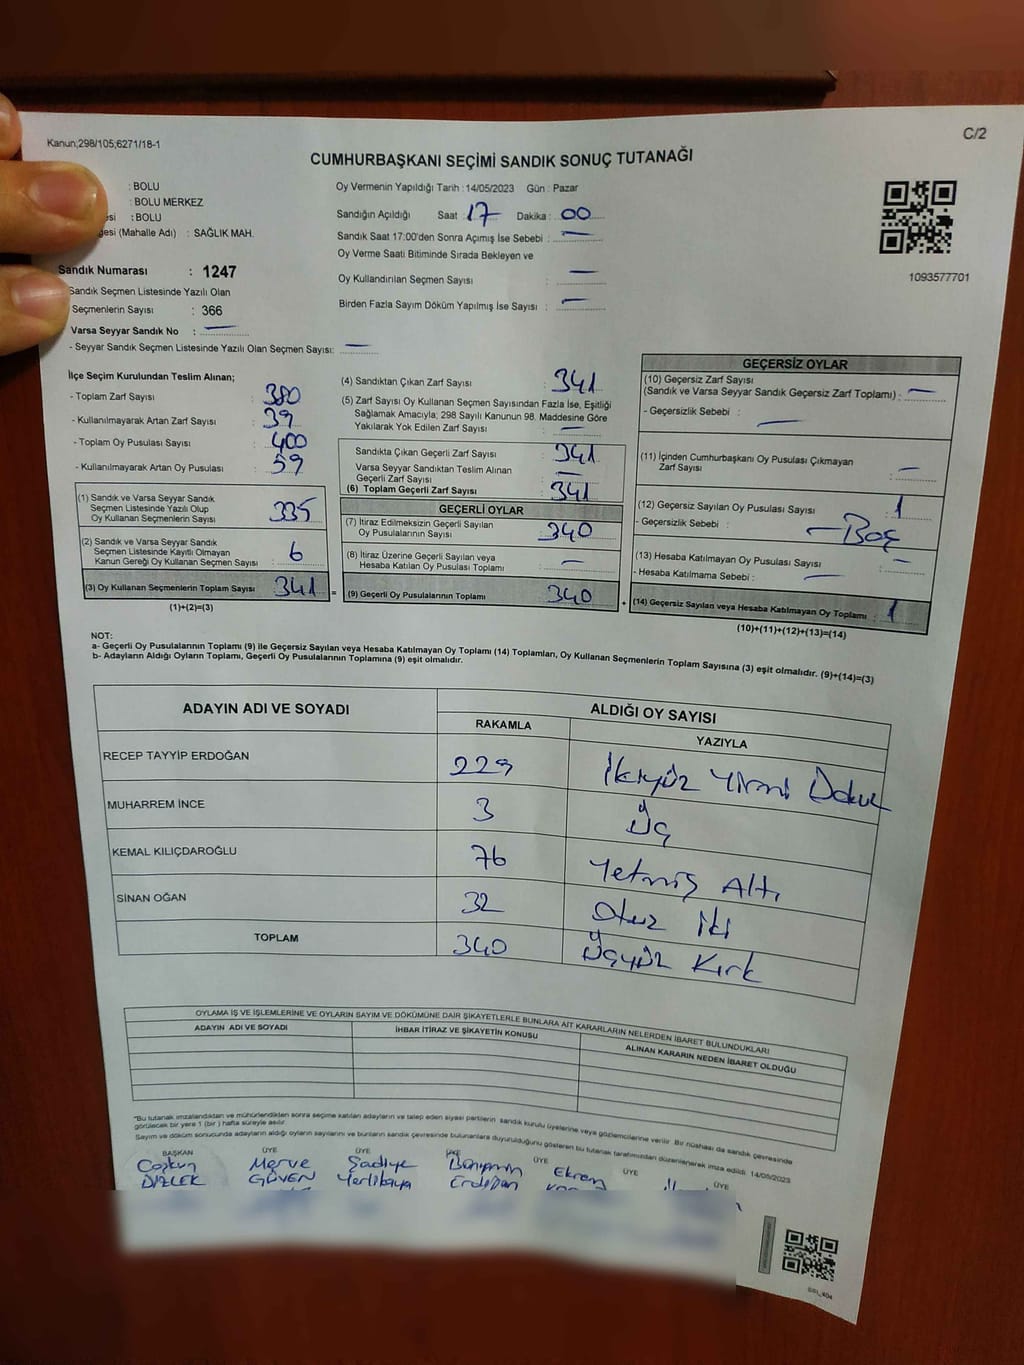 Kanun;298/105;6271/18-1
C/2
CUMHURBAŞKANI SEÇİMİ SANDIK SONUÇ TUTANAĞI
: BOLU
: BOLU MERKEZ
: BOLU
(Mahalle Adı) : SAĞLIK MAH.
Sandık Numarası : 1247
Sandık Seçmen Listesinde Yazılı Olan
Seçmenlerin Sayısı : 366
Varsa Seyyar Sandık No : —
- Seyyar Sandık Seçmen Listesinde Yazılı Olan Seçmen Sayısı: —
Oy Vermenin Yapıldığı Tarih : 14/05/2023 Gün : Pazar
Sandığın Açıldığı Saat : 17 Dakika : 00
Sandık Saat 17:00'den Sonra Açımış İse Sebebi : —
Oy Verme Saati Bitiminde Sırada Bekleyen ve
Oy Kullandırılan Seçmen Sayısı : —
Birden Fazla Sayım Döküm Yapılmış İse Sayısı : —
1093577701
İlçe Seçim Kurulundan Teslim Alınan;
- Toplam Zarf Sayısı : 380
- Kullanılmayarak Artan Zarf Sayısı : 39
- Toplam Oy Pusulası Sayısı : 400
- Kullanılmayarak Artan Oy Pusulası : 59
(1) Sandık ve Varsa Seyyar Sandık
Seçmen Listesinde Yazılı Olup
Oy Kullanan Seçmenlerin Sayısı : 335
(2) Sandık ve Varsa Seyyar Sandık
Seçmen Listesinde Kayıtlı Olmayan
Kanun Gereği Oy Kullanan Seçmen Sayısı : 6
(3) Oy Kullanan Seçmenlerin Toplam Sayısı : 341
(1)+(2)=(3)
(4) Sandıktan Çıkan Zarf Sayısı : 341
(5) Zarf Sayısı Oy Kullanan Seçmen Sayısından Fazla İse, Eşitliği
Sağlamak Amacıyla; 298 Sayılı Kanunun 98. Maddesine Göre
Yakılarak Yok Edilen Zarf Sayısı : —
Sandıkta Çıkan Geçerli Zarf Sayısı : 341
Varsa Seyyar Sandıktan Teslim Alınan
Geçerli Zarf Sayısı : —
(6) Toplam Geçerli Zarf Sayısı : 341
GEÇERLİ OYLAR
(7) İtiraz Edilmeksizin Geçerli Sayılan
Oy Pusulalarının Sayısı : 340
(8) İtiraz Üzerine Geçerli Sayılan veya
Hesaba Katılan Oy Pusulası Toplamı : —
= (9) Geçerli Oy Pusulalarının Toplamı : 340
GEÇERSİZ OYLAR
(10) Geçersiz Zarf Sayısı
(Sandık ve Varsa Seyyar Sandık Geçersiz Zarf Toplamı) : —
- Geçersizlik Sebebi : —
(11) İçinden Cumhurbaşkanı Oy Pusulası Çıkmayan
Zarf Sayısı : —
(12) Geçersiz Sayılan Oy Pusulası Sayısı : 1
- Geçersizlik Sebebi : — Boş
(13) Hesaba Katılmayan Oy Pusulası Sayısı : —
- Hesaba Katılmama Sebebi : —
+ (14) Geçersiz Sayılan veya Hesaba Katılmayan Oy Toplamı : 1
(10)+(11)+(12)+(13)=(14)
NOT:
a- Geçerli Oy Pusulalarının Toplamı (9) ile Geçersiz Sayılan veya Hesaba Katılmayan Oy Toplamı (14) Toplamları, Oy Kullanan Seçmenlerin Toplam Sayısına (3) eşit olmalıdır. (9)+(14)=(3)
b- Adayların Aldığı Oyların Toplamı, Geçerli Oy Pusulalarının Toplamına (9) eşit olmalıdır.
ADAYIN ADI VE SOYADI ALDIĞI OY SAYISI
RAKAMLA YAZIYLA
RECEP TAYYİP ERDOĞAN 229 İkiyüz Yirmi Dokuz
MUHARREM İNCE 3 Üç
KEMAL KILIÇDAROĞLU 76 Yetmiş Altı
SİNAN OĞAN 32 Otuz İki
TOPLAM 340 Üçyüz Kırk
OYLAMA İŞ VE İŞLEMLERİNE VE OYLARIN SAYIM VE DÖKÜMÜNE DAİR ŞİKAYETLERLE BUNLARA AİT KARARLARIN NELERDEN İBARET BULUNDUKLARI
ADAYIN ADI VE SOYADI İHBAR İTİRAZ VE ŞİKAYETİN KONUSU ALINAN KARARIN NEDEN İBARET OLDUĞU
*Bu tutanak imzalandıktan ve mühürlendikten sonra seçime katılan adayların ve talep eden siyasi partilerin sandık kurulu üyelerine veya gözlemcilerine verilir. Bir nüshası da sandık çevresinde
görülecek bir yere 1 (bir) hafta süreyle asılır
Sayım ve döküm sonucunda adayların aldığı oyların sayılarını ve bunların sandık çevresinde bulunanlara duyurulduğunu gösteren bu tutanak tarafımızdan düzenlenerek imza edildi. 14/05/2023
BAŞKAN ÜYE ÜYE ÜYE ÜYE ÜYE ÜYE
Coşkun Merve Şadiye Bünyamin Ekrem
GÜVEN Yerlikaya Erdoğan